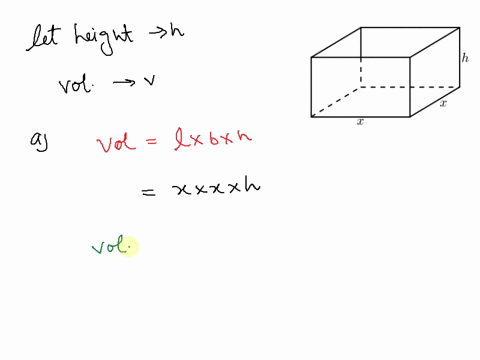 let height → h
vol. → v
a) vol = l x b x h
= x x x x h
vol.
h
x
x